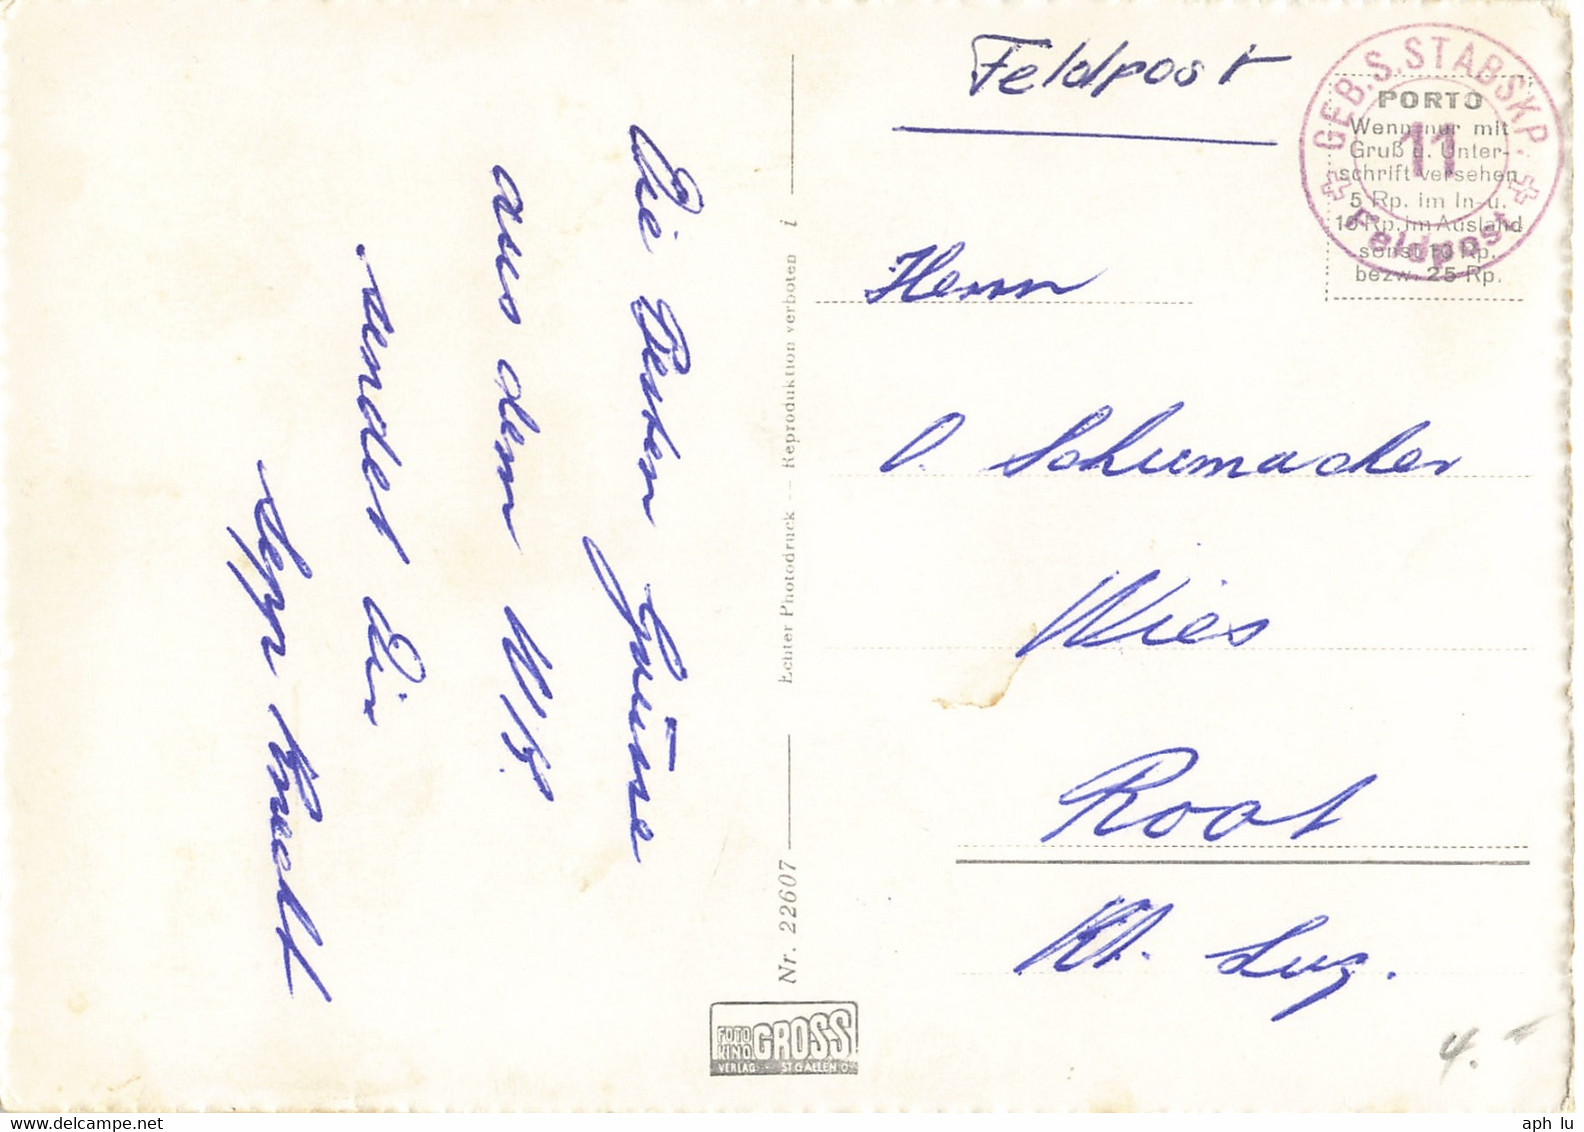 Die Besten Grüsse
aus dem W/K.
sendet Dir
Sepp Knecht
Feldpost
Herrn
O. Schumacher
Wies
Root
Kt. Luz.
GEB.S.STABSKP.
11
Feldpost
PORTO
Wenn nur mit
Gruß u. Unter-
schrift versehen
5 Rp. im In- u.
10 Rp. im Ausland
sonst 10 Rp.
bezw. 25 Rp.
Nr. 22607
Echter Photodruck — Reproduktion verboten
i
FOTO KINO GROSS
VERLAG - ST GALLEN O
4.-
aph lu